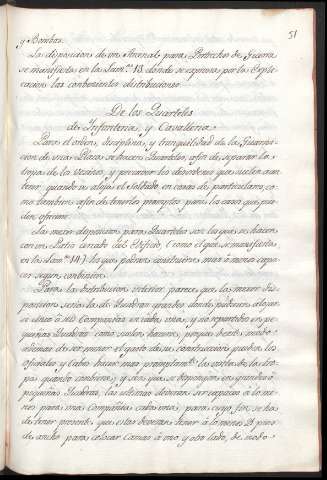 51
y Bombas.
La disposicion de un Arsenal para Pertrechos de Guerra
se manifiesta en la Lam.ª 13 donde se expresa por la Expli-
cacion las combenientes distribuciones.
De los Quarteles
de Infanteria, y Cavalleria
Para el orden, disciplina, y tranquilidad de la Guarni-
cion de una Plaza, se hacen Quarteles, afin de separar la
tropa de los Vecinos, y precaver los desordenes que suelen acon-
tecer, quando se aloja el Soldado en casas de particulares, co-
mo tambien afin de tenerlos promptos para los casos que pue-
dan ofrecerse.
La mejor disposicion para Quarteles es la que se hacen
con un Patio cerrado del Edificio, como el que se manifiesta
en la Lam.ª 14, los que podran construirse mas o menos capa-
ces segun combiniere.
Para la distribucion interior parece que la mejor dis-
posicion seria la de Quadras grandes donde pudiesen alojar-
se una o dos Compañias en cada una, y no repartirlos en pe-
queñas Quadras como suelen hacerse, porque de este modo
ademas de ser menor el gasto de su construccion pueden los
Oficiales y Cabos hacer mas promptam.te las visitas de la tro-
pa quando combiene, y sea que se dispongan en grandes o
pequeñas Quadras, las ultimas deveran ser capaces a lo me-
nos para una Compañia cada una, para cuyo fin se ha
de tener presente que estas deveran tener a lo menos 21 pies
de ancho para colocar Camas a uno y otro lado, de modo